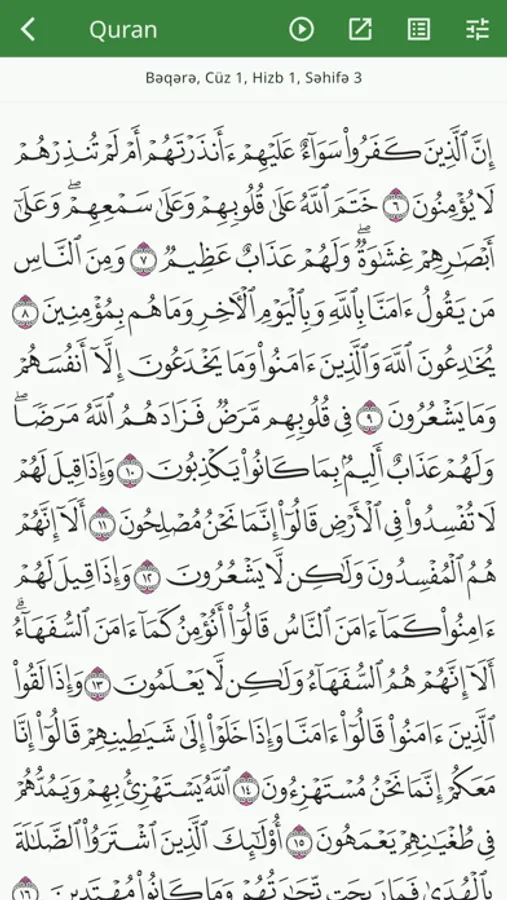 Quran
Bəqərə, Cüz 1, Hizb 1, Səhifə 3
إِنَّ ٱلَّذِينَ كَفَرُوا۟ سَوَآءٌ عَلَيْهِمْ ءَأَنذَرْتَهُمْ أَمْ لَمْ تُنذِرْهُمْ
لَا يُؤْمِنُونَ ٦ خَتَمَ ٱللَّهُ عَلَىٰ قُلُوبِهِمْ وَعَلَىٰ سَمْعِهِمْ ۖ وَعَلَىٰٓ
أَبْصَٰرِهِمْ غِشَٰوَةٌ ۖ وَلَهُمْ عَذَابٌ عَظِيمٌ ٧ وَمِنَ ٱلنَّاسِ
مَن يَقُولُ ءَامَنَّا بِٱللَّهِ وَبِٱلْيَوْمِ ٱلْءَاخِرِ وَمَا هُم بِمُؤْمِنِينَ ٨
يُخَٰدِعُونَ ٱللَّهَ وَٱلَّذِينَ ءَامَنُوا۟ وَمَا يَخْدَعُونَ إِلَّآ أَنفُسَهُمْ
وَمَا يَشْعُرُونَ ٩ فِى قُلُوبِهِم مَّرَضٌ فَزَادَهُمُ ٱللَّهُ مَرَضًا ۖ
وَلَهُمْ عَذَابٌ أَلِيمٌۢ بِمَا كَانُوا۟ يَكْذِبُونَ ١٠ وَإِذَا قِيلَ لَهُمْ
لَا تُفْسِدُوا۟ فِى ٱلْأَرْضِ قَالُوٓا۟ إِنَّمَا نَحْنُ مُصْلِحُونَ ١١ أَلَآ إِنَّهُمْ
هُمُ ٱلْمُفْسِدُونَ وَلَٰكِن لَّا يَشْعُرُونَ ١٢ وَإِذَا قِيلَ لَهُمْ
ءَامِنُوا۟ كَمَآ ءَامَنَ ٱلنَّاسُ قَالُوٓا۟ أَنُؤْمِنُ كَمَآ ءَامَنَ ٱلسُّفَهَآءُ ۗ
أَلَآ إِنَّهُمْ هُمُ ٱلسُّفَهَآءُ وَلَٰكِن لَّا يَعْلَمُونَ ١٣ وَإِذَا لَقُوا۟
ٱلَّذِينَ ءَامَنُوا۟ قَالُوٓا۟ ءَامَنَّا وَإِذَا خَلَوْا۟ إِلَىٰ شَيَٰطِينِهِمْ قَالُوٓا۟ إِنَّا
مَعَكُمْ إِنَّمَا نَحْنُ مُسْتَهْزِءُونَ ١٤ ٱللَّهُ يَسْتَهْزِئُ بِهِمْ وَيَمُدُّهُمْ
فِى طُغْيَٰنِهِمْ يَعْمَهُونَ ١٥ أُو۟لَٰٓئِكَ ٱلَّذِينَ ٱشْتَرَوُا۟ ٱلضَّلَٰلَةَ
بِٱلْهُدَىٰ فَمَا رَبِحَت تِّجَٰرَتُهُمْ وَمَا كَانُوا۟ مُهْتَدِينَ ١٦